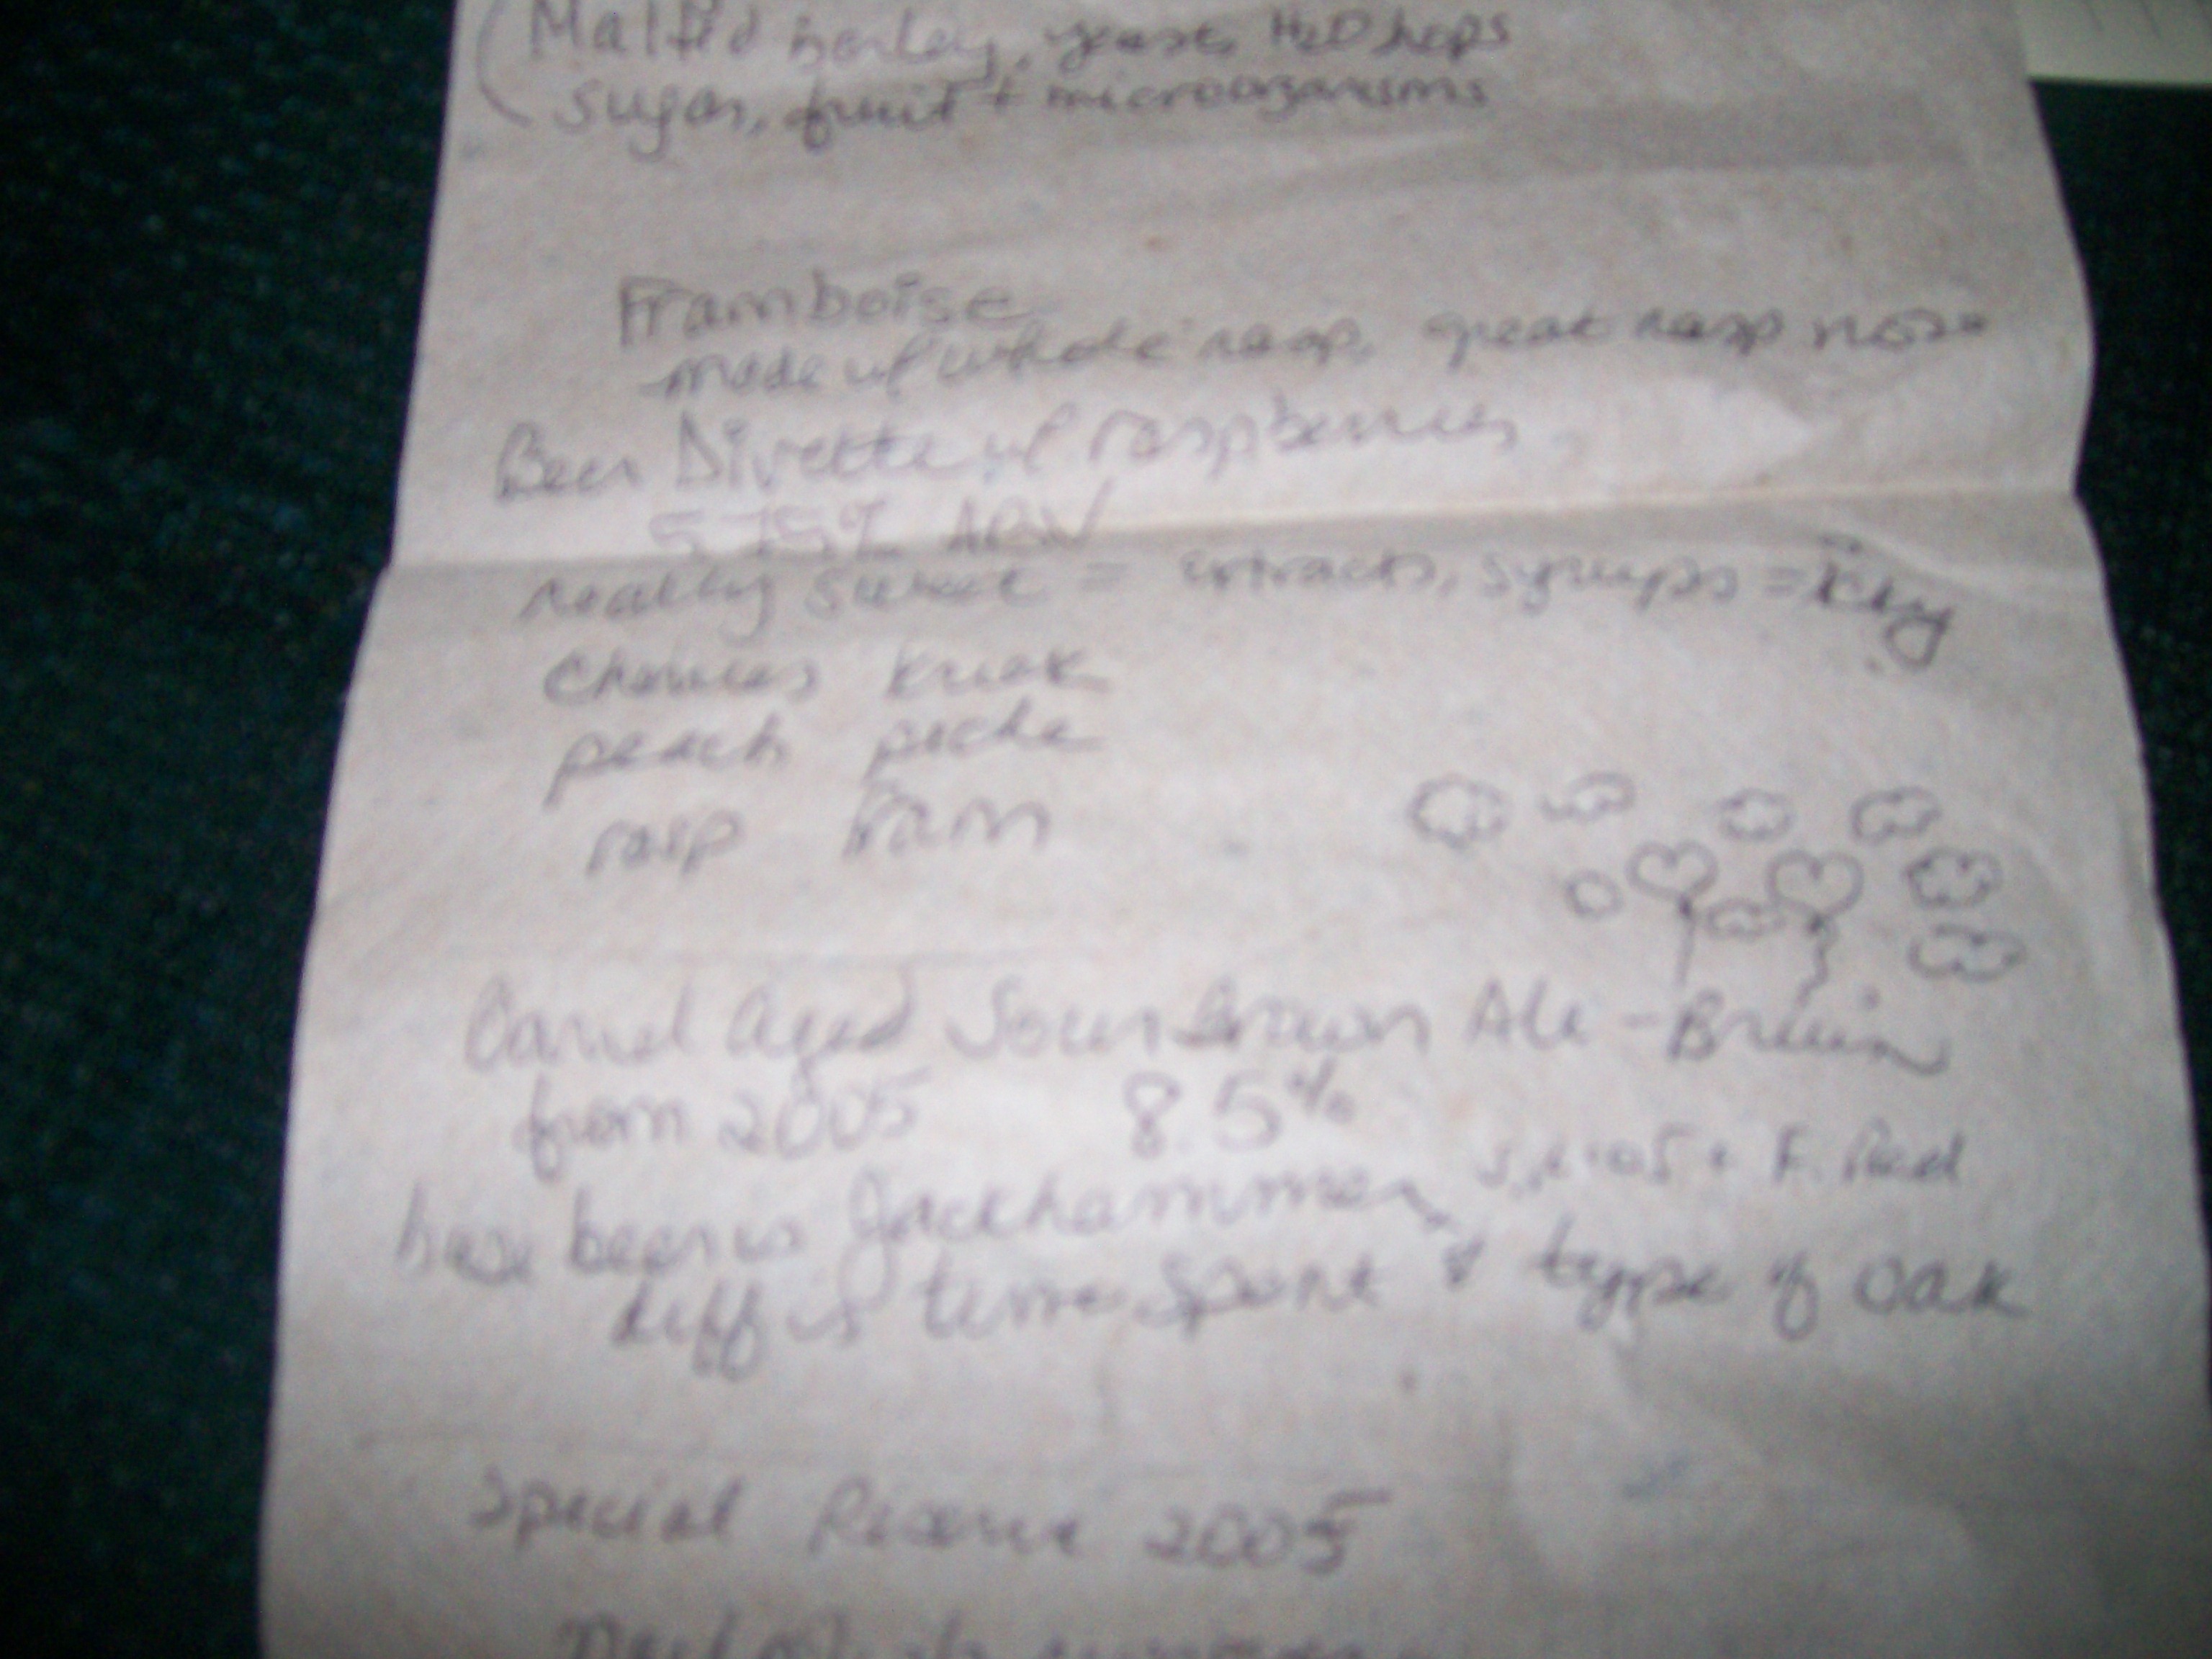 (Malted barley, yeast, H2O hops
sugar, fruit + microorganisms
Framboise
made w/ whole rasp, great rasp nose
Beer w/ raspberries
5.75% ABV
really sweet = extracts, syrups = icky
cherries kriek
peach peche
rasp Fram
Barrel aged Sour Brown Ale - Bruin
from 2005 8.5%
base beer is Jackhammer
diff is time spent & type of oak
Special Reserve 2005